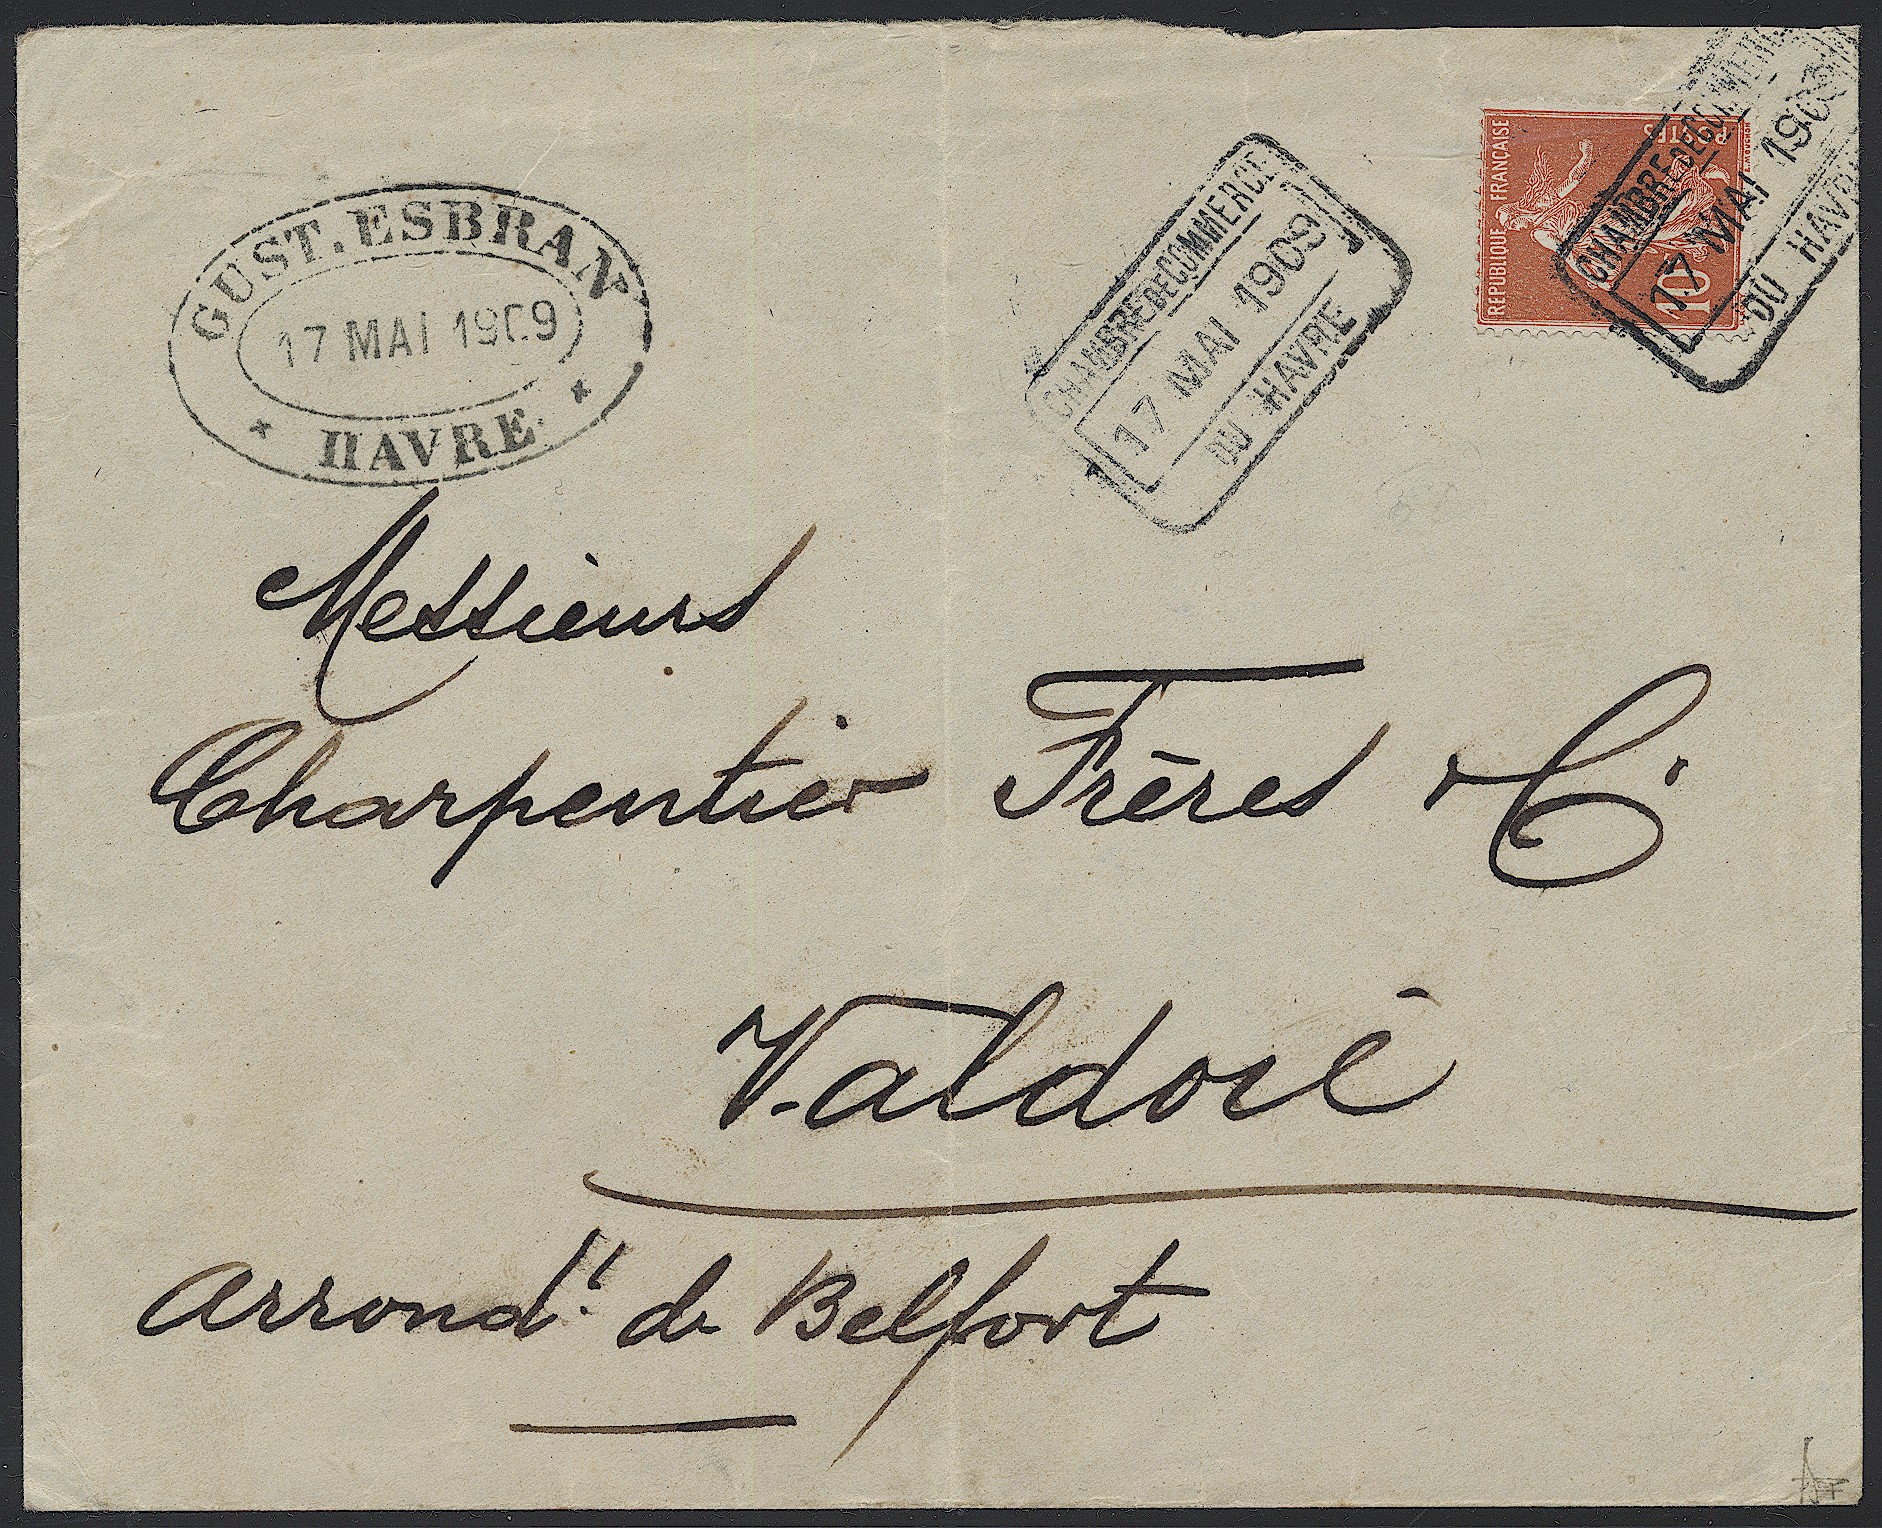 GUST. ESBRAN
17 MAI 1909
HAVRE
CHAMBRE DE COMMERCE
17 MAI 1909
DU HAVRE
REPUBLIQUE FRANÇAISE
POSTES
10
CHAMBRE DE COMMERCE
17 MAI 1909
DU HAVRE
Messieurs
Charpentier Frères & Cie
Valdoie
Arrondt. de Belfort